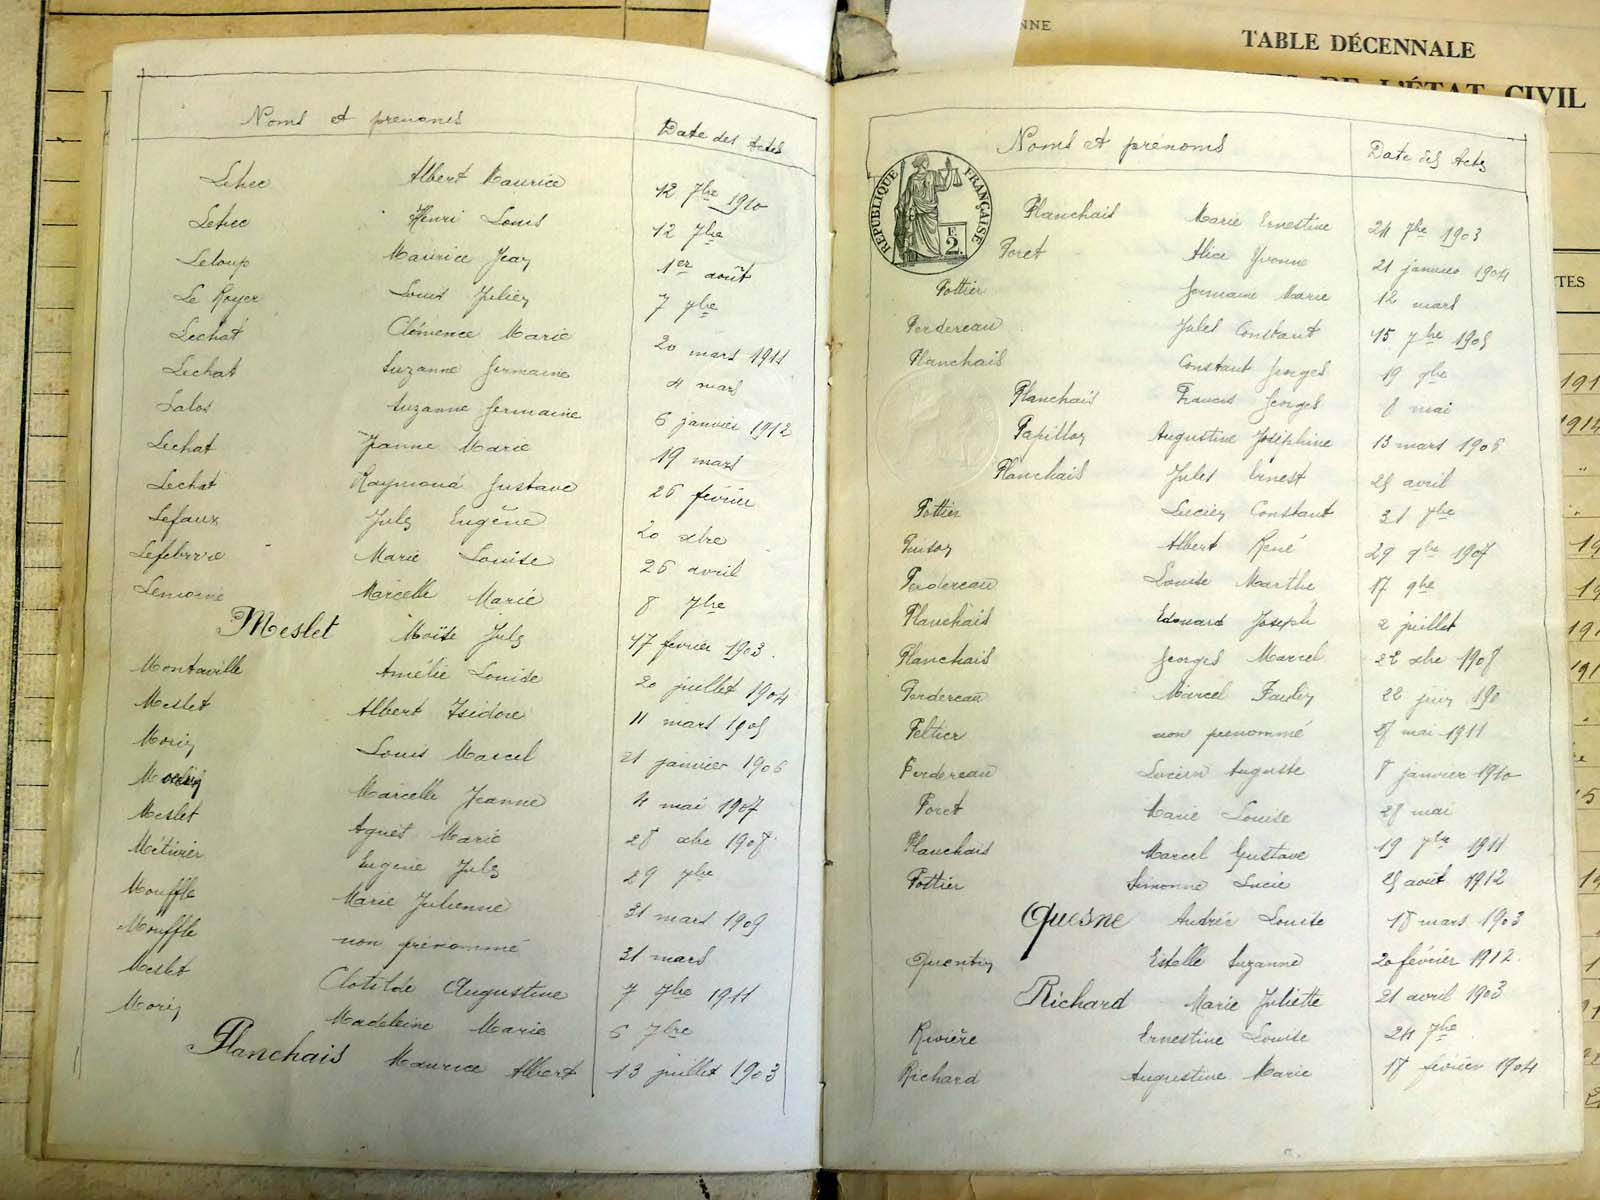 NNE
TABLE DÉCENNALE
DE L'ÉTAT CIVIL
TES
Noms et prénoms Date des Actes
Lehec Albert Maurice 12 7bre 1910
Lehec Henri Louis 12 7bre
Leloup Maurice Jean 1er août
Le Royer Louis Julien 7 9bre
Lechat Clémence Marie 20 mars 1911
Lechat Suzanne Germaine 4 mars
Lalos Suzanne Germaine 6 janvier 1912
Lechat Jeanne Marie 19 mars
Lechat Raymond Gustave 26 février
Lefaux Jules Eugène 20 xbre
Lefebvre Marie Louise 26 avril
Lemoine Marcelle Marie 8 7bre
Meslet Moïse Jules 17 février 1903
Montaville Amélie Louise 20 juillet 1904
Meslet Albert Isidore 11 mars 1905
Morin Louis Marcel 21 janvier 1906
Morin Marcelle Jeanne 4 mai 1907
Meslet Agnès Marie 28 xbre 1908
Métivier Eugène Jules 29 9bre
Mouffle Marie Julienne 31 mars 1909
Mouffle non prénommé 31 mars
Meslet Clotilde Augustine 7 9bre 1911
Morin Madeleine Marie 6 7bre
Planchais Maurice Albert 13 juillet 1903
Noms et prénoms Date des Actes
RÉPUBLIQUE FRANÇAISE
F. 2.
Planchais Marie Ernestine 24 7bre 1903
Poret Alice Yvonne 21 janvier 1904
Pottier Germaine Marie 12 mars
Perdereau Jules Constant 15 7bre 1905
Planchais Constant Georges 19 9bre
Planchais Francis Georges 8 mai
Papillon Augustine Joséphine 13 mars 1906
Planchais Jules Ernest 25 avril
Pottier Lucien Constant 21 7bre
Albert René 29 9bre 1907
Perdereau Louise Marthe 17 9bre
Planchais Edouard Joseph 2 juillet
Planchais Georges Marcel 22 xbre 1908
Perdereau Marcel 22 juin 190
Peltier non prénommé 27 mai 1911
Perdereau Lucien Auguste 8 janvier 1910
Poret Marie Louise 28 mai
Planchais Marcel Gustave 19 7bre 1911
Pottier Simonne Lucie 25 août 1912
Quesne Andrée Louise 18 mars 1903
Quentin Estelle Suzanne 20 février 1912.
Richard Marie Juliette 21 avril 1903
Rivière Ernestine Louise 24 7bre
Richard Augustine Marie 18 février 1904